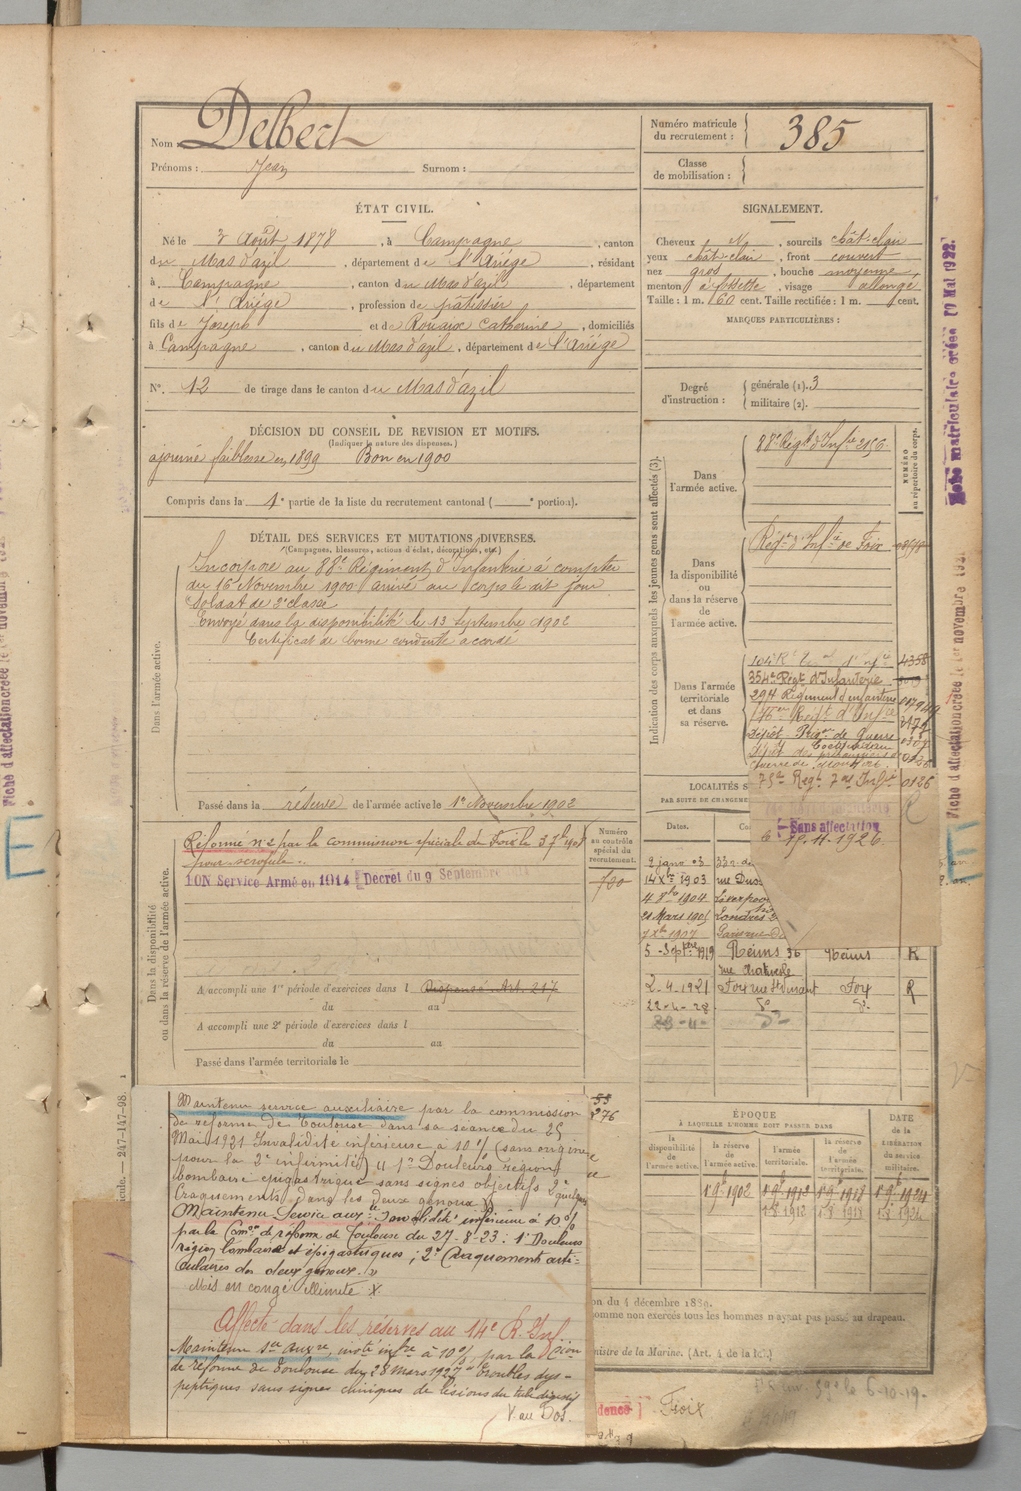 Nom : Delbert
Prénoms : Jean Surnom :
Numéro matricule du recrutement : 385
Classe de mobilisation :
ÉTAT CIVIL.
Né le 3 Août 1878, à Campagne, canton
du Mas d'azil, département de l'Ariège, résidant
à Campagne, canton du Mas d'azil, département
de l'Ariège, profession de pâtissier
fils de Joseph et de Rouaix Catherine, domiciliés
à Campagne, canton du Mas d'azil, département de l'Ariège
N°. 12 de tirage dans le canton du Mas d'azil
SIGNALEMENT.
Cheveux N, sourcils chât-clair
yeux chât-clair, front couvert
nez gros, bouche moyenne,
menton à fossette, visage allongé
Taille : 1 m. 60 cent. Taille rectifiée : 1 m. cent.
MARQUES PARTICULIÈRES :
Degré d'instruction : générale (1). 3
militaire (2).
DÉCISION DU CONSEIL DE REVISION ET MOTIFS.
(Indiquer la nature des dispenses.)
ajourné faiblesse en 1899 Bon en 1900
Compris dans la 1e partie de la liste du recrutement cantonal ( e portion).
DÉTAIL DES SERVICES ET MUTATIONS DIVERSES.
(Campagnes, blessures, actions d'éclat, décorations, etc.)
Dans l'armée active.
Incorporé au 88e Régiment d'Infanterie à compter
du 16 Novembre 1900 arrivé au corps le dit jour
Soldat de 2e classe
Envoyé dans la disponibilité le 13 Septembre 1902
Certificat de bonne conduite accordé
Passé dans la réserve de l'armée active le 1er Novembre 1902
Dans la disponibilité ou dans la réserve de l'armée active.
Réformé n°2 par la commission spéciale de Foix le
pour scrofule.
BON Service Armé en 1914 Décret du 9 Septembre
A accompli une 1re période d'exercices dans l Dispensé Art. 217
du au
A accompli une 2e période d'exercices dans l
du au
Passé dans l'armée territoriale le
Numéro au contrôle spécial du recrutement.
700
Indication des corps auxquels les jeunes gens sont affectés (3).
NUMÉRO au répertoire du corps.
Dans l'armée active.
88e Régt d'Infie 2156
Dans la disponibilité ou dans la réserve de l'armée active.
Régt d'Infie de Foix
Dans l'armée territoriale et dans sa réserve.
4358
354e Régt d'Infanterie
Régiment d'infanterie
Dépôt Pris. de Guerre
75e Regt 7 Infie 0126
Sans affectation
le 15.11.1926
LOCALITÉS S
PAR SUITE DE CHANGEME
Dates.
2 janv 03
14 Xbre 1903
4 8bre 1904 Liverpool
21 Mars 1905 Londres
7 Xbre 1907
5 Septbre 1919 Reims 36 Reims R
rue
2-4-1921 Foix rue St Vincent Foix R
22-4-28 do do
23-4- do
ÉPOQUE
À LAQUELLE L'HOMME DOIT PASSER DANS
la disponibilité de l'armée active.
la réserve de l'armée active.
l'armée territoriale.
la réserve de l'armée territoriale.
DATE de la LIBÉRATION du service militaire.
1 9b 1902 1 9b 1912 1 9b 1918 1 9b 1924
1-8-1912 1-8-1918 1-8-1924
Maintenu service auxiliaire par la commission
de réforme de Toulouse dans sa séance du 25
Mai 1921 Invalidité inférieure à 10% (sans origine
pour la 2e infirmité) 1° Douleurs région
lombaire epigastrique sans signes objectifs 2° quelques
Craquements dans les deux genoux
Maintenu Service auxre Invalidité inférieure à 10%
par la Comon de réforme de Toulouse du 27-8-23 : 1° Douleurs
région lombaire et épigastriques ; 2° Craquements arti-
culaires des deux genoux.
Mis en congé illimité
Affecté dans les réserves au 14e R. Inf.
Maintenu Sce Auxre, invté infre à 10% par la Con
de réforme de Toulouse du 28 mars 1927 troubles dys-
peptiques sans signes cliniques de lésions du tube digestif
V. au Dos.
on du 4 décembre 1889.
omme non exercés tous les hommes n'ayant pas passé au drapeau.
nistre de la Marine. (Art. 4 de la loi.)
6-10-19
dence Foix
cule. — 247-147-98.
Fiche matriculaire créée 10 Mai 1922.
Fiche d'affectation créée le 1er novembre 192
E
E